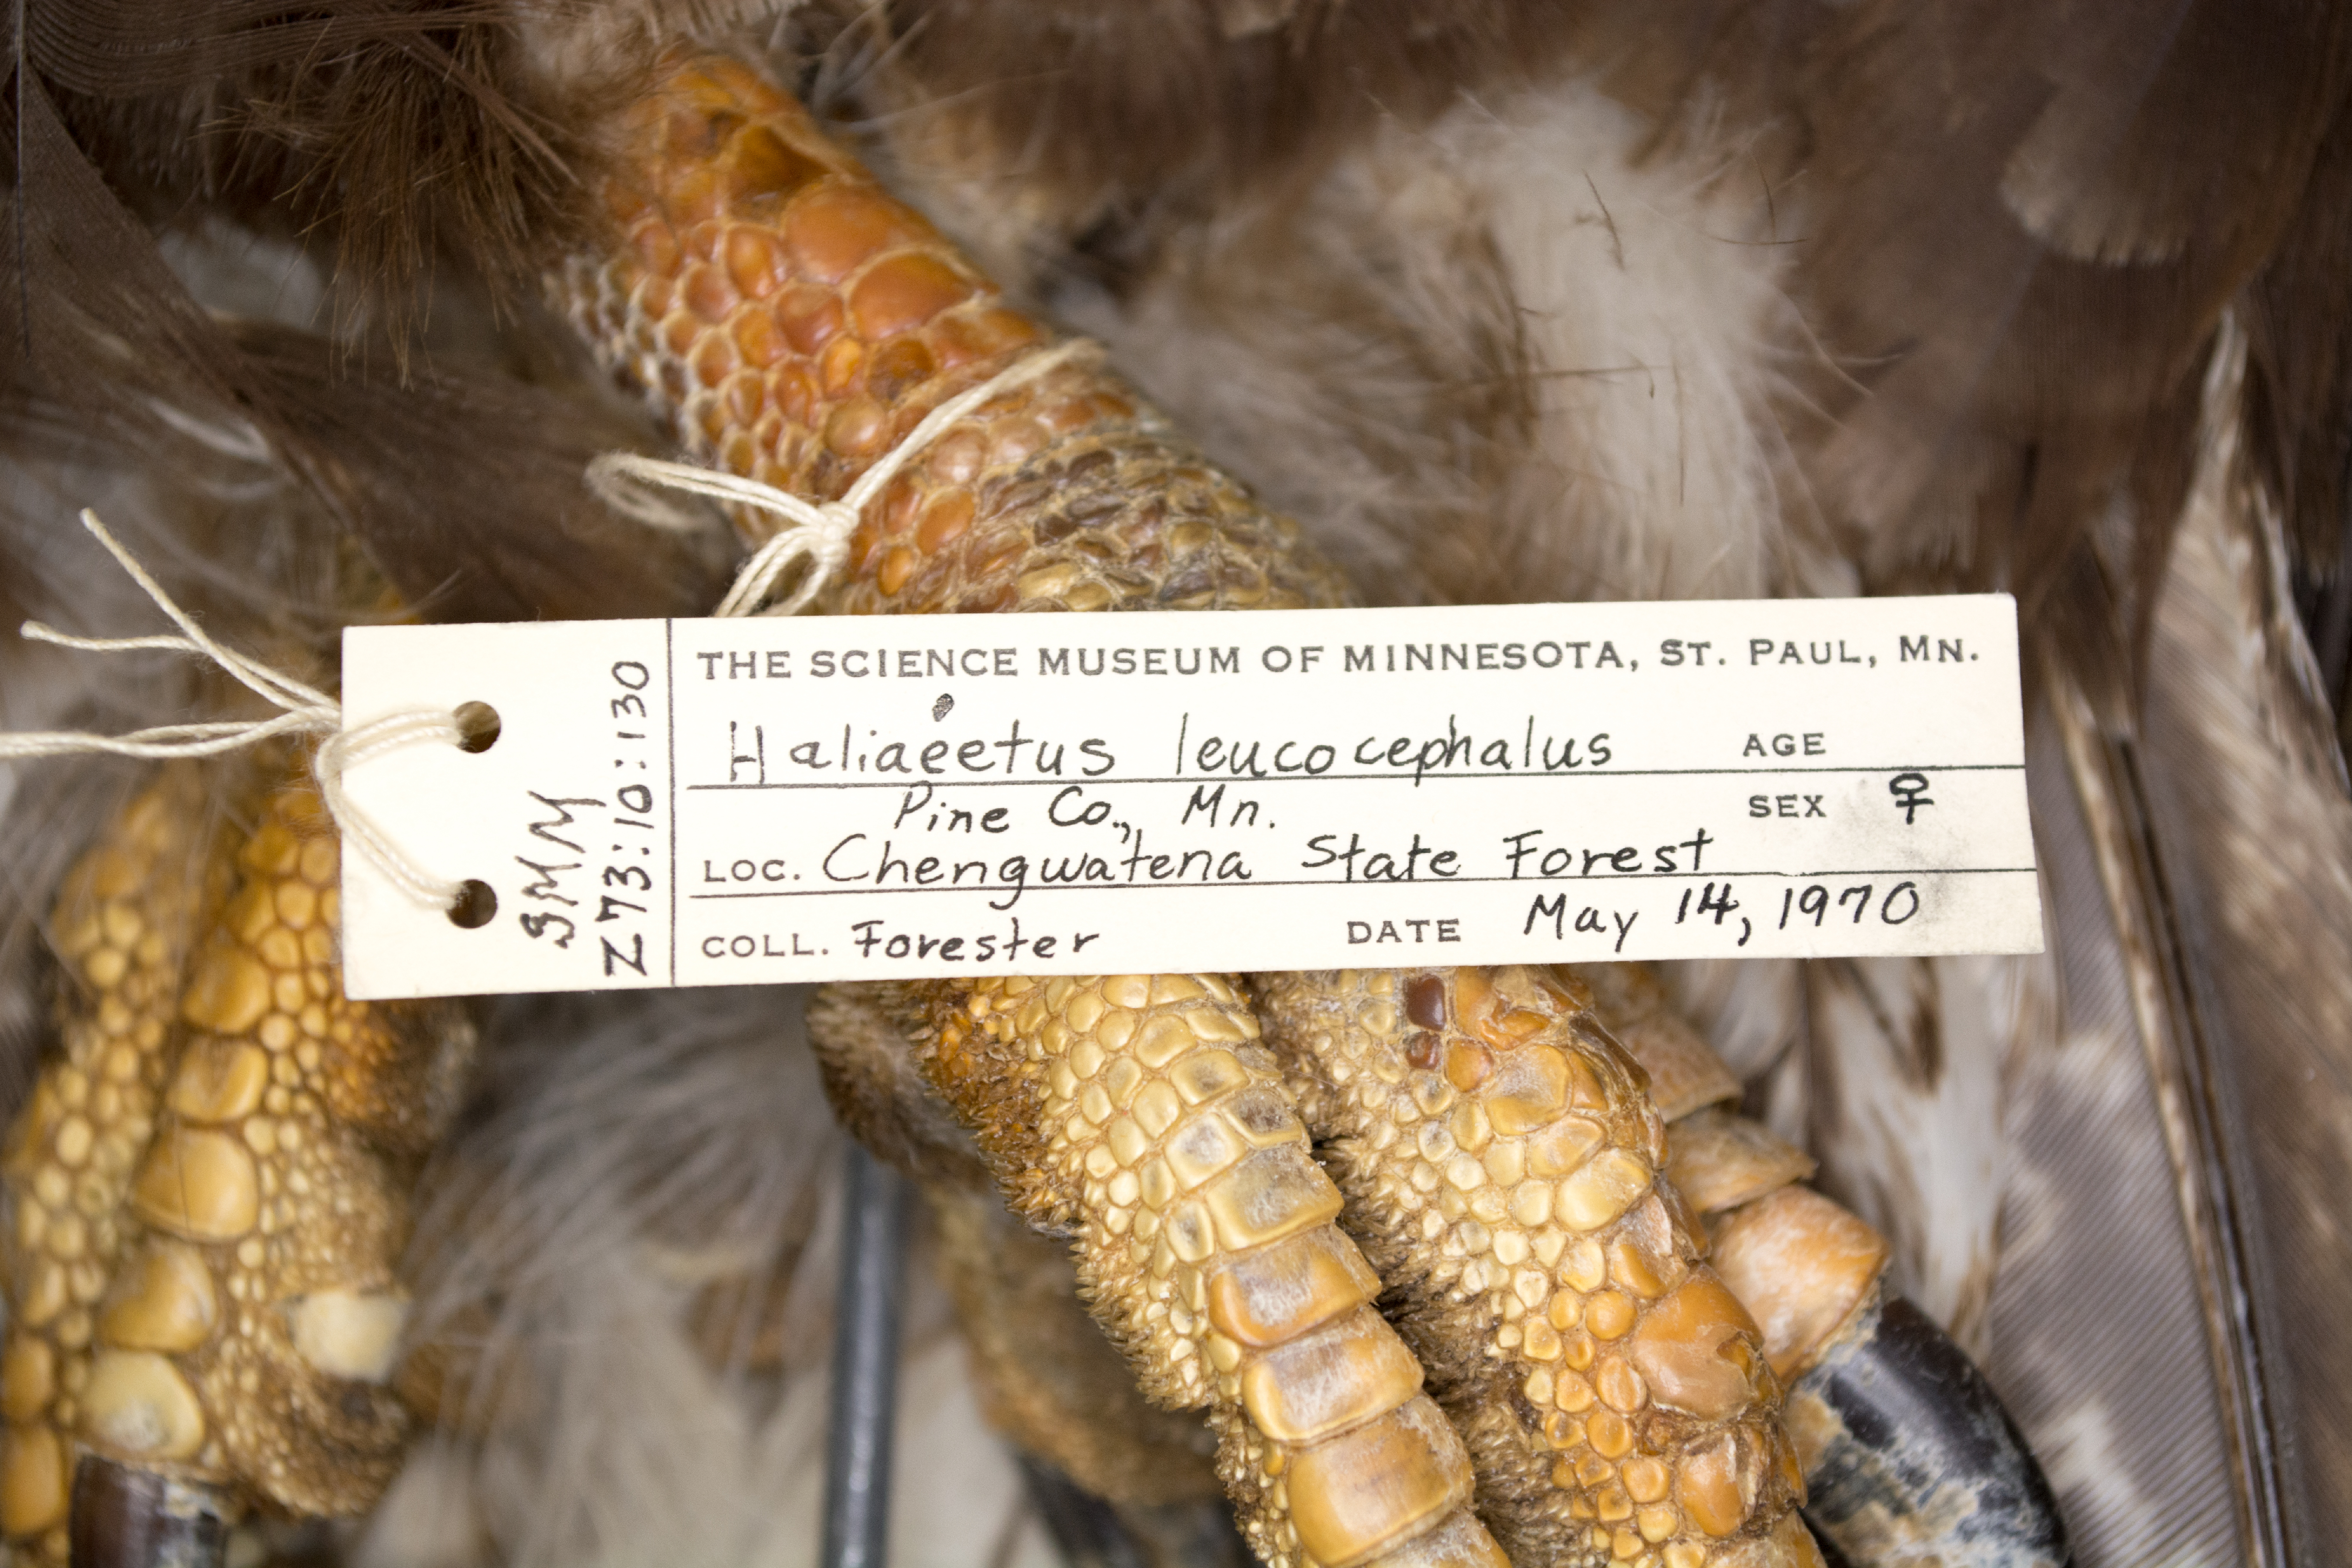 SMM
Z73:10:130
THE SCIENCE MUSEUM OF MINNESOTA, ST. PAUL, MN.
Haliaeetus leucocephalus AGE
Pine Co., Mn. SEX ♀
LOC. Chengwatena State Forest
COLL. Forester DATE May 14, 1970